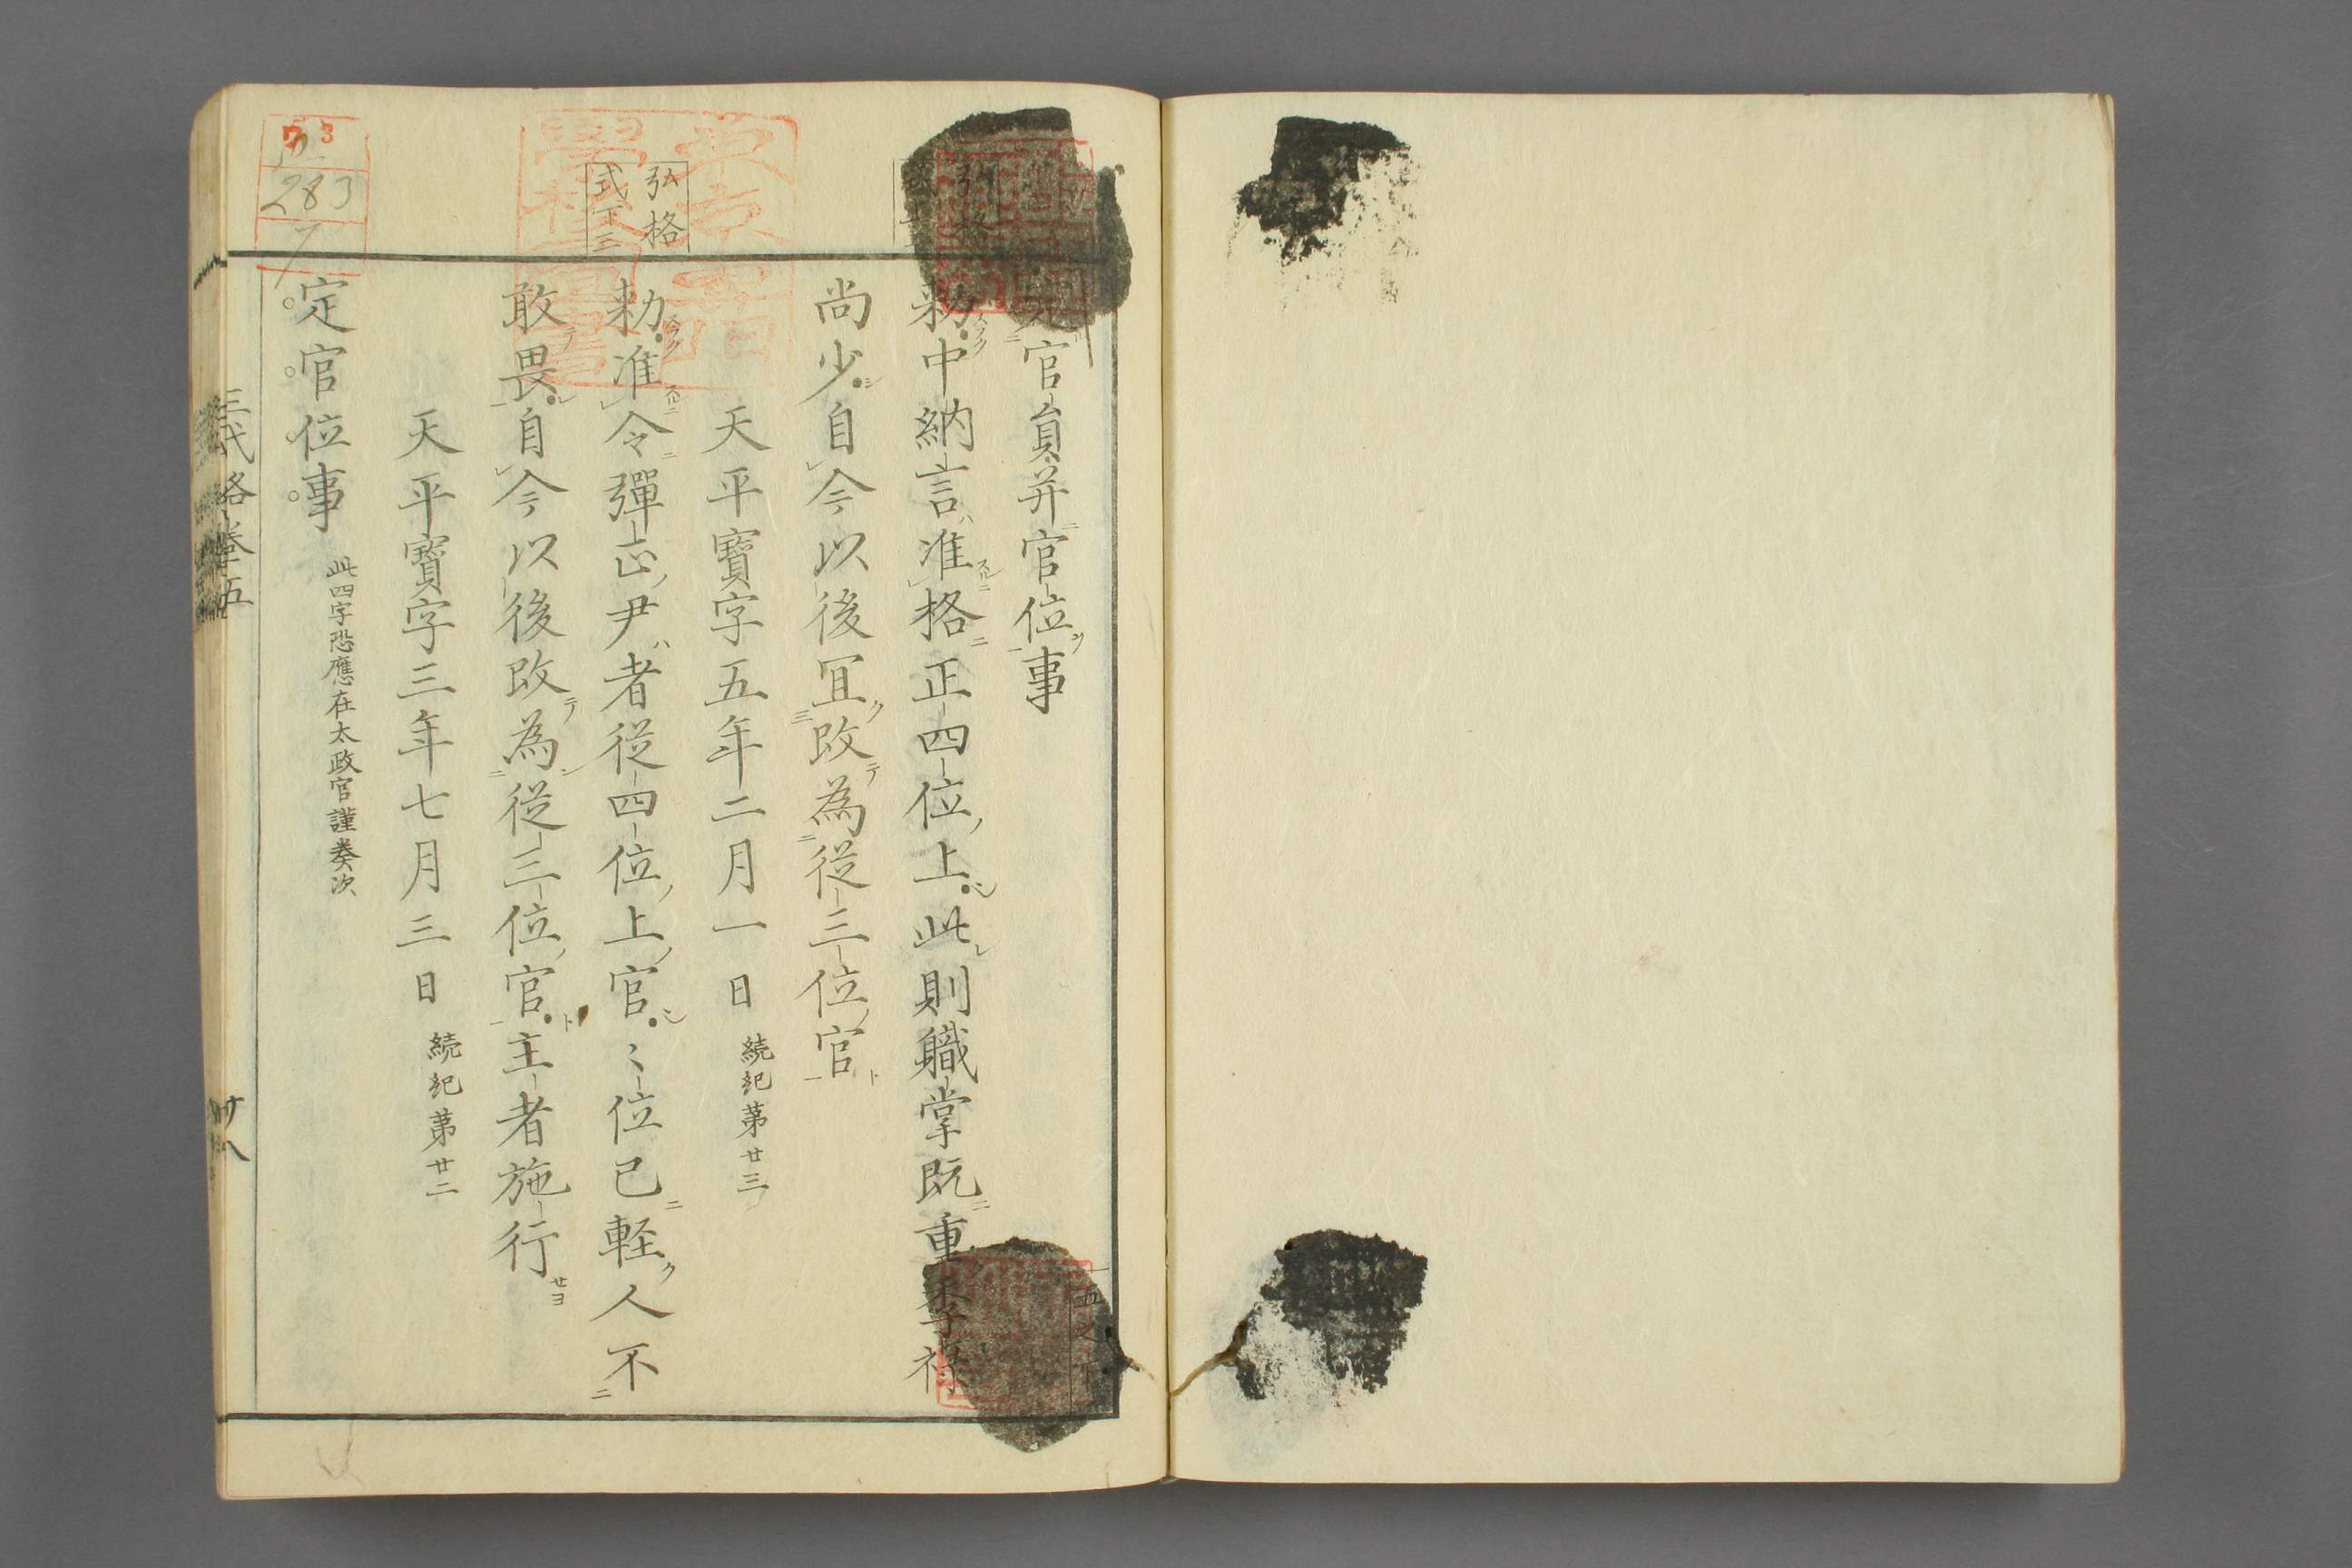 定官員并官位事
弘格
勑中納言准格正四位上此則職掌既重季禄
尚少自今以後冝改為従三位官
天平寳字五年二月一日 続紀第廿三
弘格
式下三
勑准令彈正尹者従四位上官〻位已軽人不
敢畏自今以後改為従三位官主者施行
天平寳字三年七月三日 続紀第廿二
定官位事 此四字恐應在太政官謹奏次
三代格巻五
廿八
五之下
73
283
7